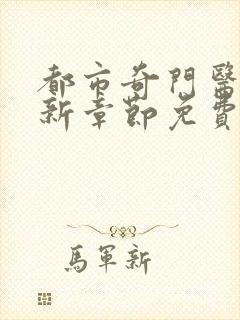 都市奇門醫
新章節免費
馬軍新